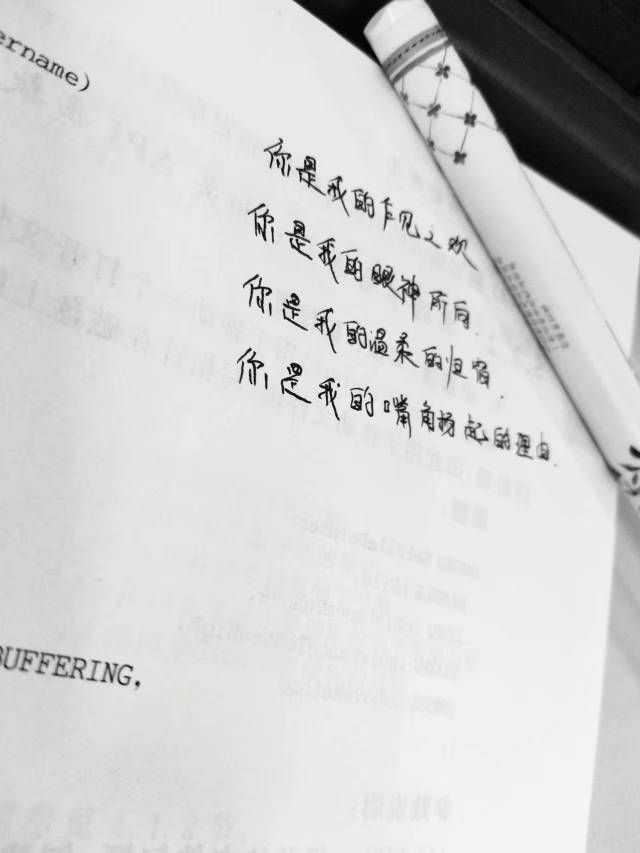 ername)
你是我的乍见之欢
你是我的眼神所向.
你是我的温柔的归宿.
你是我的嘴角扬起的理由.
BUFFERING,